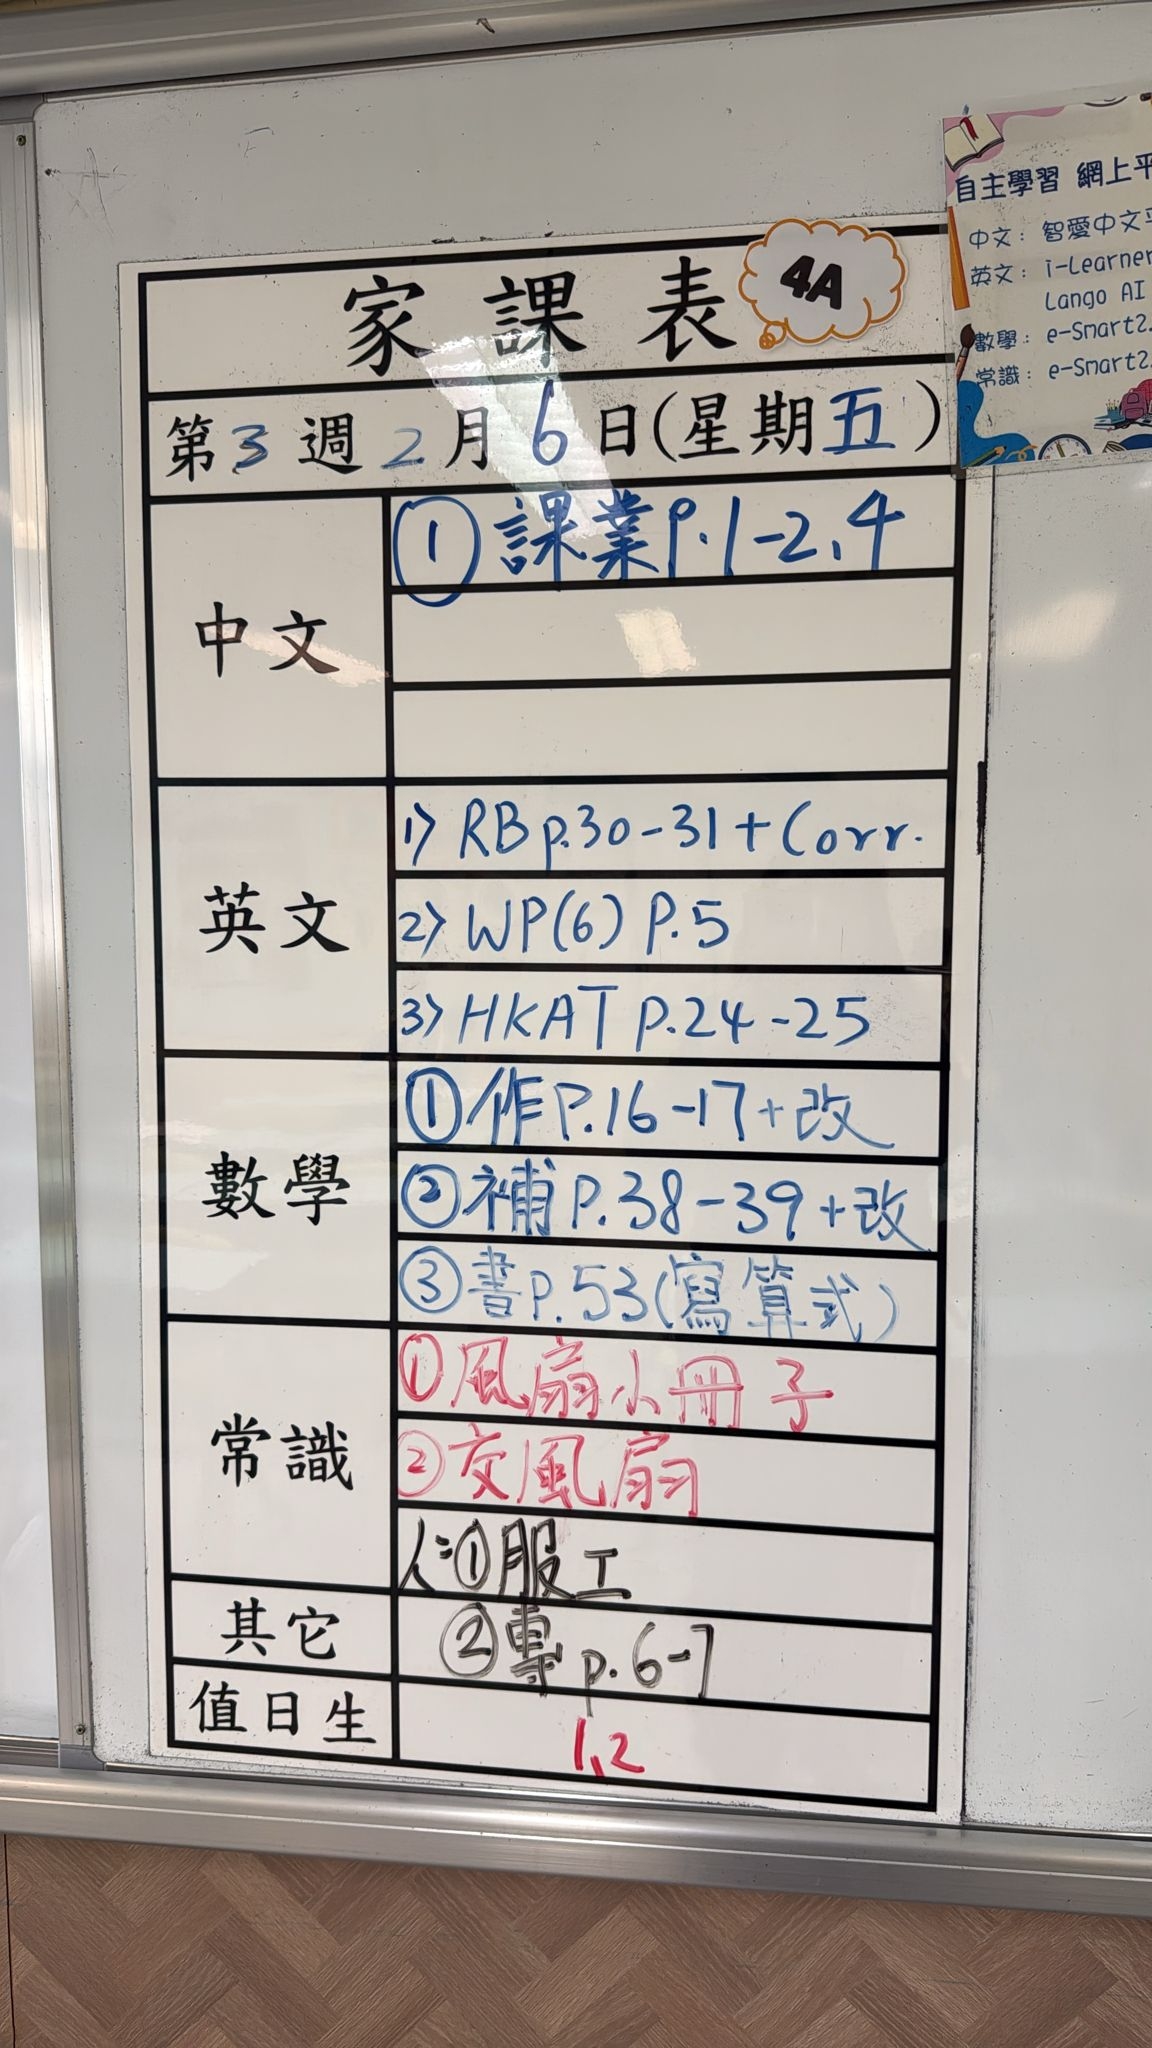 家課表
4A
第3週2月6日(星期五)
中文
①課業P.1-2,4
英文
1> RB p.30-31+Corr.
2> WP(6) P.5
3> HKAT p.24-25
數學
①作P.16-17+改
②補P.38-39+改
③書P.53(寫算式)
常識
①風扇小冊子
②交風扇
人:①服工
其它
②專p.6-7
值日生
1,2
自主學習 網上平
中文：智愛中文平
英文：i-Learner
Lango AI
數學：e-Smart2.
常識：e-Smart2.